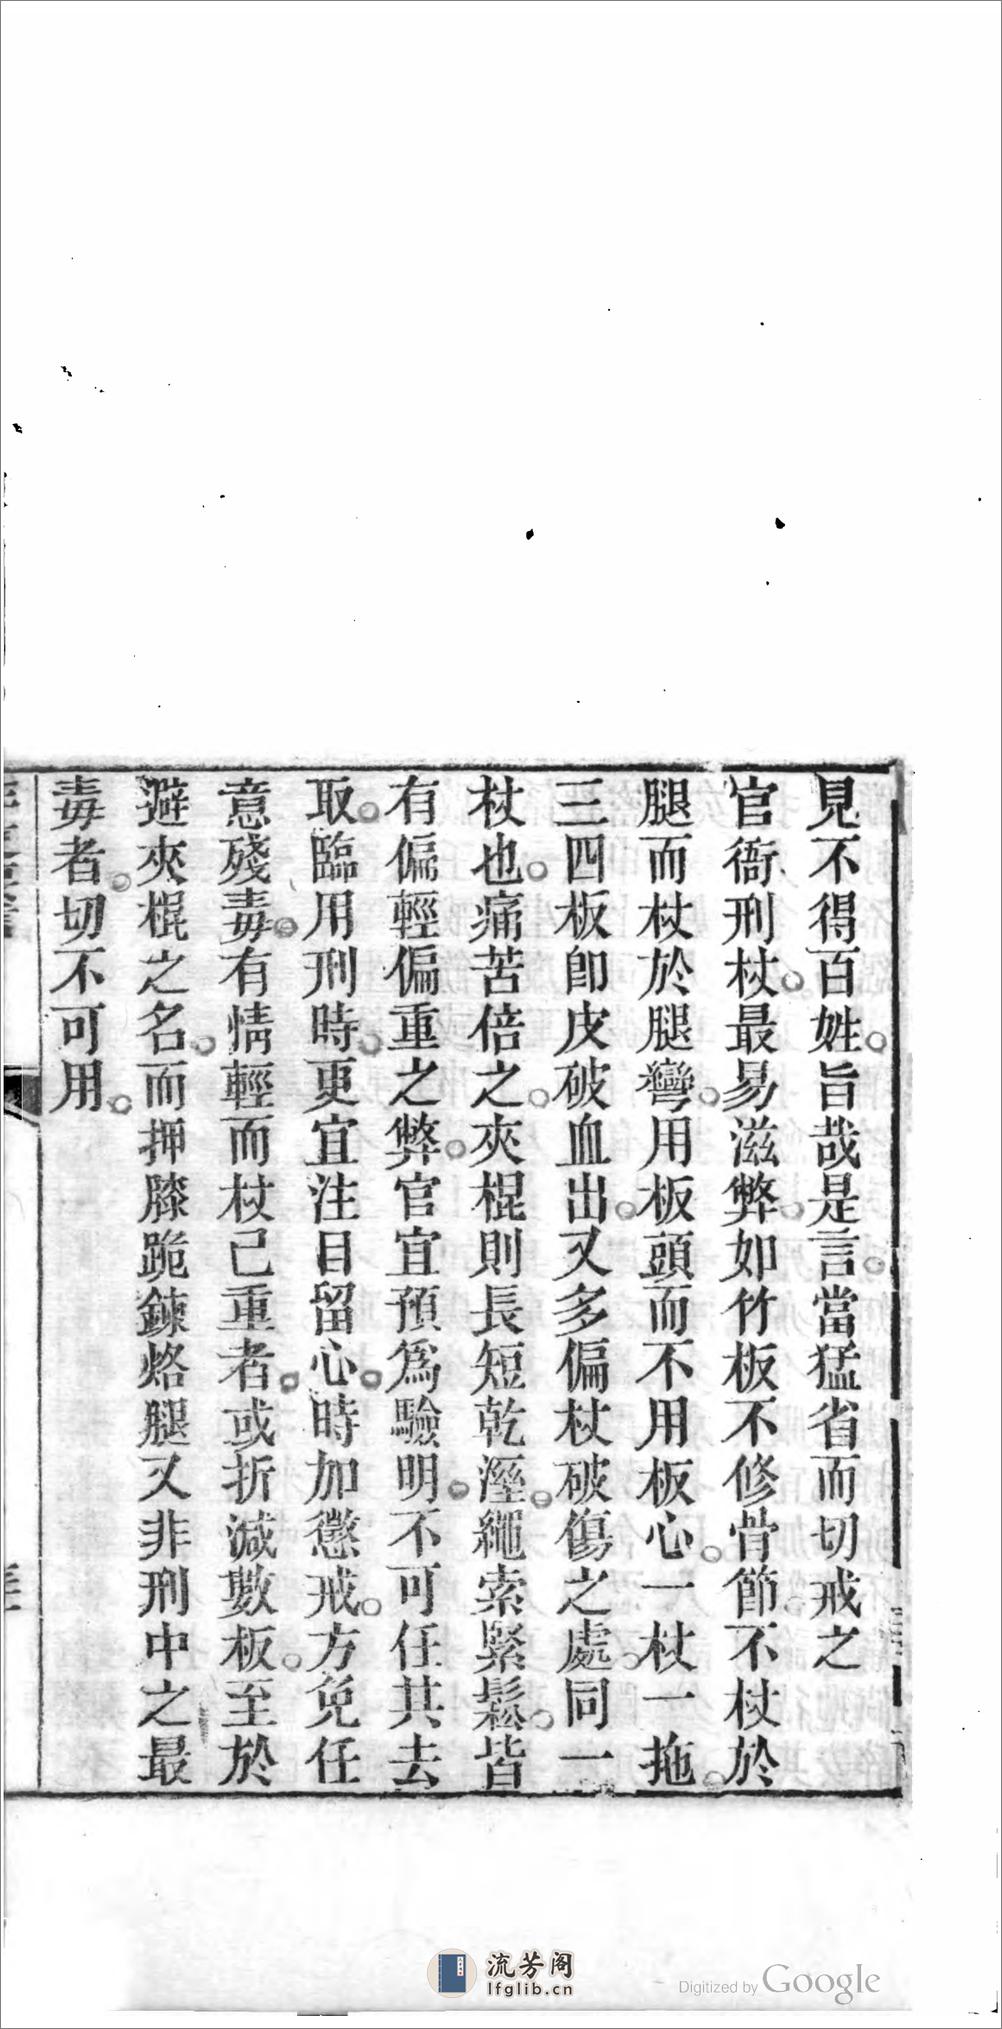 見不得百姓。旨哉是言。當猛省而切戒之
官衙刑杖。最易滋弊。如竹板不修骨節。不杖於
腿而杖於腿彎。用板頭而不用板心。一杖一拖。
三四板卽皮破血出。又多偏杖破傷之處。同一
杖也。痛苦倍之。夾棍則長短乾溼。繩索緊鬆。皆
有偏輕偏重之弊。官宜預爲驗明。不可任其去
取。臨用刑時。更宜注目留心。時加懲戒。方免任
意殘毒。有情輕而杖已重者。或折減數板。至於
避夾棍之名。而押膝跪鍊烙腿又非刑中之最
毒者。切不可用。
流芳阁
lfglib.cn
Digitized by Google